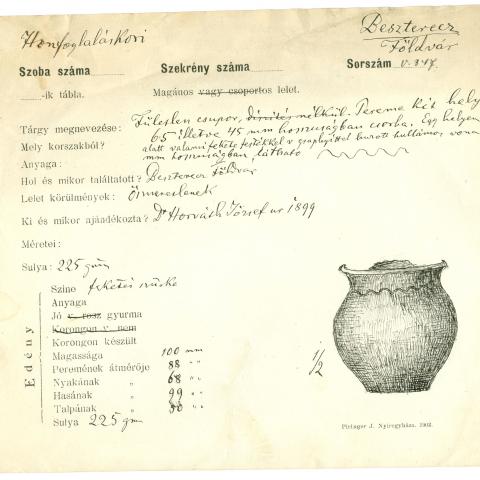 Honfoglaláskori
Beszterecz
Földvár
Szoba száma
Szekrény száma
Sorszám V. 347.
-ik tábla.
Magános vagy csoportos lelet.
Tárgy megnevezése: Fületlen csupor, díszítés nélkül. Pereme két helyen
Mely korszakból? 65 illetve 45 mm hosszúságban csorba. Egy helyen
alatt valami fekete festékkel v graphittel húzott hullámos vonal
Anyaga: mm hosszúságban, látható
Hol és mikor találtatott? Beszterecz Földvár
Lelet körülmények: Ismeretlenek
Ki és mikor ajándékozta? Dr Horváth József ur 1899
Méretei:
Sulya: 225 grm
Edény
Szine feketés szürke
Anyaga
Jó v. rosz gyurma
Korongon v. nem
Korongon készült
Magassága 100 mm
Peremének átmérője 88 "
Nyakának " 68 "
Hasának " 99 "
Talpának " 50 "
Sulya 225 grm
1/2
Piringer J. Nyiregyháza. 1902.